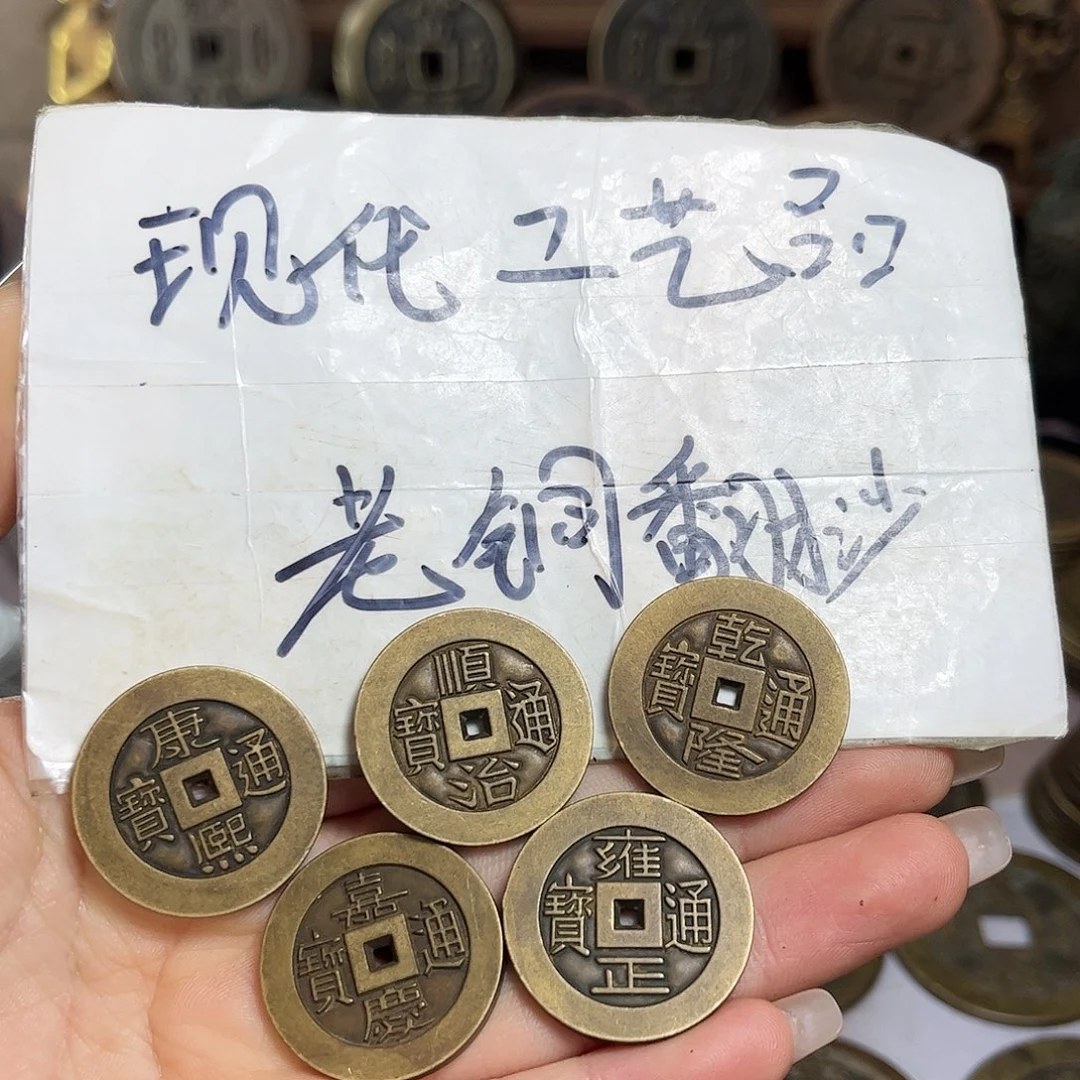 现代工艺品
老铜翻沙
康熙通寶
順治通寶
乾隆通寶
嘉慶通寶
雍正通寶